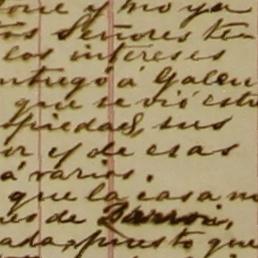 y no ya
Señores ten
los intereses
á Galen
que se vió esta
piedad, sus
or y de esas
á varios.
que la casa m
es de Barron,
ada, puesto que